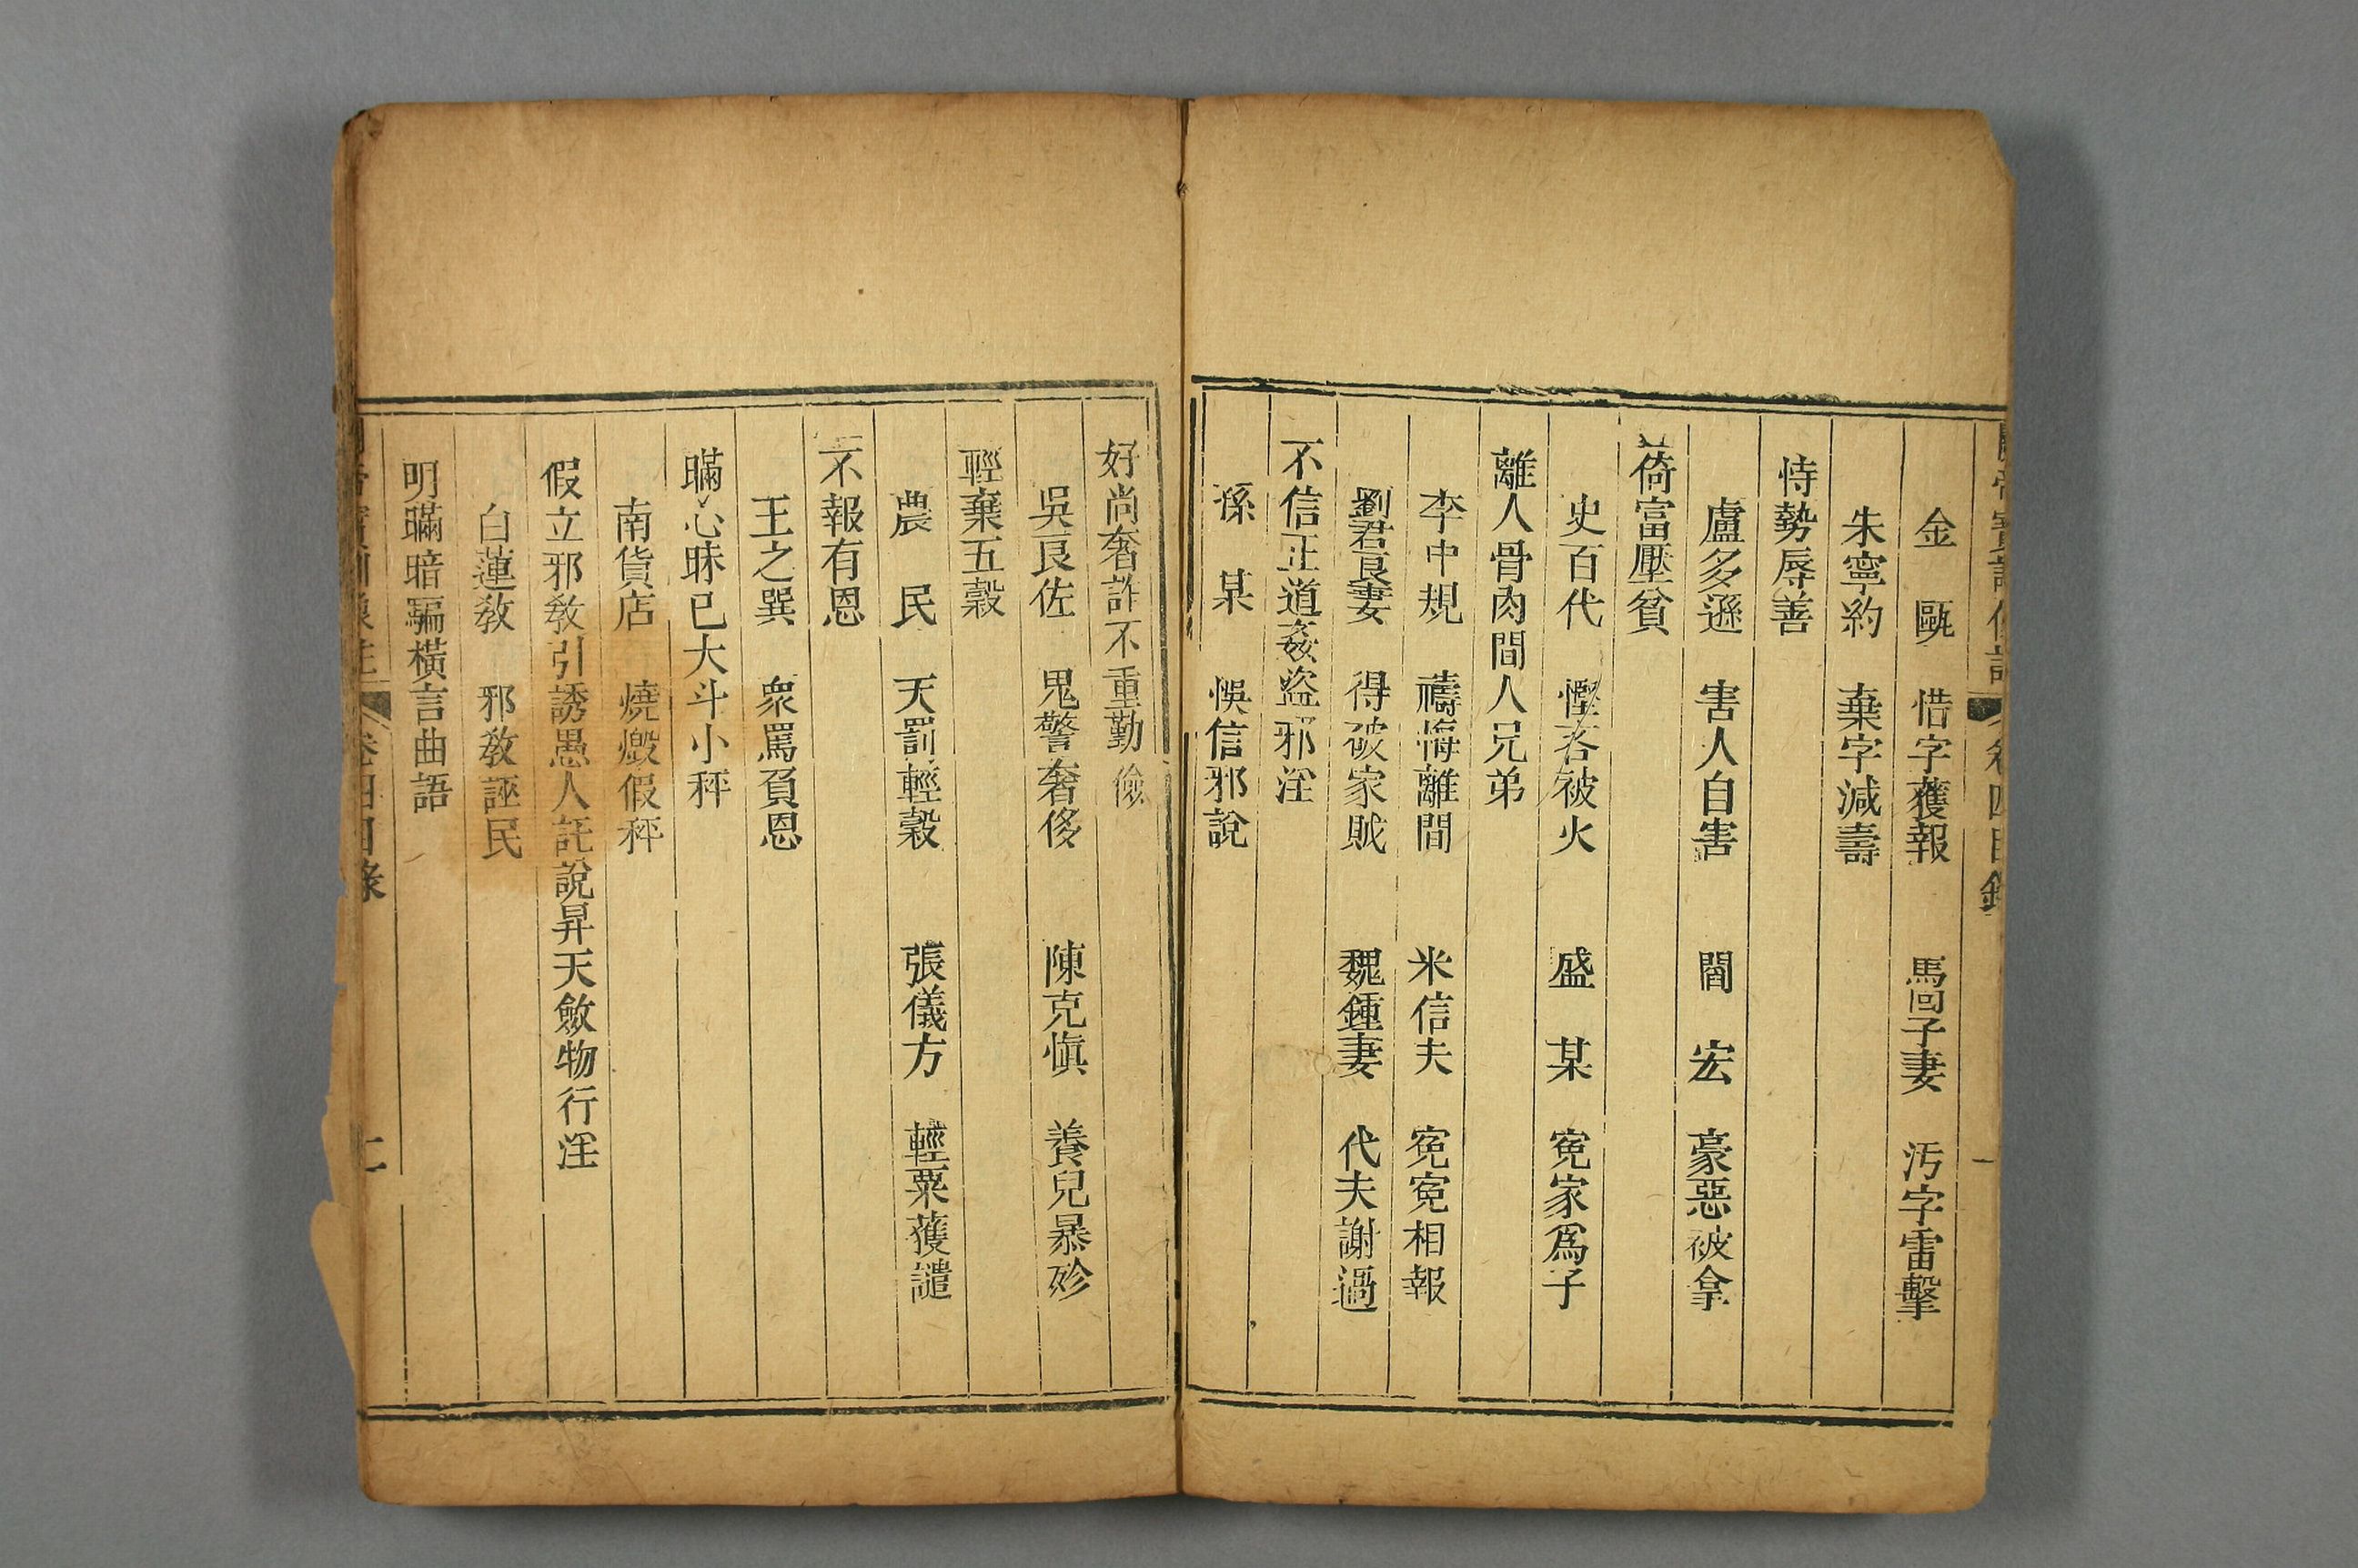 金　甌　惜字獲報　馬回子妻　汚字雷擊
朱寧約　棄字減壽
恃勢辱善
盧多遜　害人自害　閻　宏　豪惡被拿
倚富壓貧
史百代　慳吝被火　盛　某　寃家爲子
離人骨肉間人兄弟
李中規　禱悔離間　米信夫　寃寃相報
劉君良妻　得破家賊　魏鍾妻　代夫謝過
不信正道姦盜邪淫
孫　某　悞信邪說
好尚奢詐不重勤儉
吳良佐　鬼警奢侈　陳克愼　養兒暴殄
輕棄五穀
農　民　天罰輕穀　張儀方　輕粟獲譴
不報有恩
王之巽　衆罵負恩
瞞心昧已大斗小秤
南貨店　燒燬假秤
假立邪教引誘愚人託說昇天斂物行淫
白蓮教　邪教誣民
明瞞暗騙橫言曲語
卷四目錄